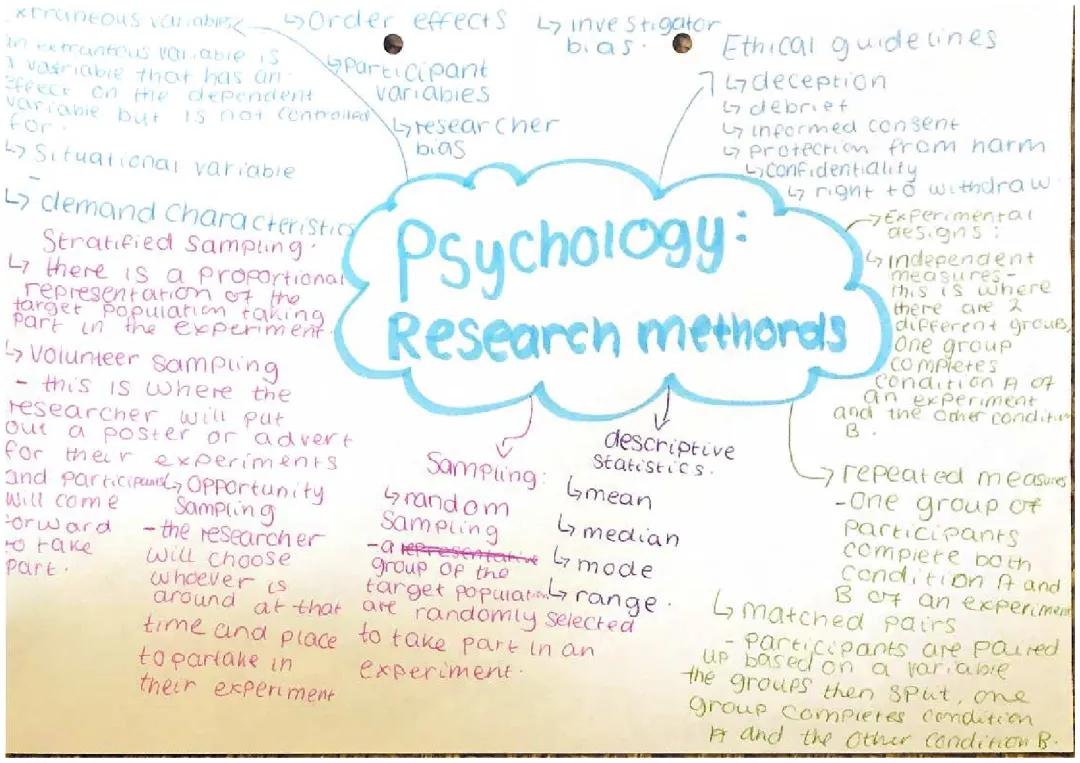 Psychology:
Research methords
xtraneous variables
an extraneous variable is
a vasriable that has an
effect on the dependent
variable but is not controlled
for.
↳ Situational variable
-
↳ demand characteristics
↳ Order effects
↳ participant
variables
↳ researcher
bias
↳ investigator
bias.
Ethical guidelines
↳ deception
↳ debrief
↳ informed consent
↳ protection from harm
↳ confidentiality
↳ right to withdraw
→ Experimental
designs:
↳ independent
measures -
this is where
there are 2
different groups,
one group
completes
condition A of
an experiment
and the other condition
B.
→ repeated measures
- One group of
participants
complete both
condition A and
B of an experiment
↳ matched pairs
- participants are paired
up based on a variable
the groups then split, one
group completes condition
A and the other condition B.
descriptive
statistics.
↳ mean
↳ median
↳ mode
↳ range.
Sampling:
↳ random
Sampling
- a representative
group of the
target population
are randomly selected
to take part in an
experiment.
↳ Opportunity
Sampling
- the researcher
will choose
whoever is
around at that
time and place
to partake in
their experiment
Stratified Sampling.
↳ there is a proportional
representation of the
target population taking
part in the experiment.
↳ Volunteer sampling
- this is where the
researcher will put
out a poster or advert
for their experiments
and participants
will come
forward
to take
part.